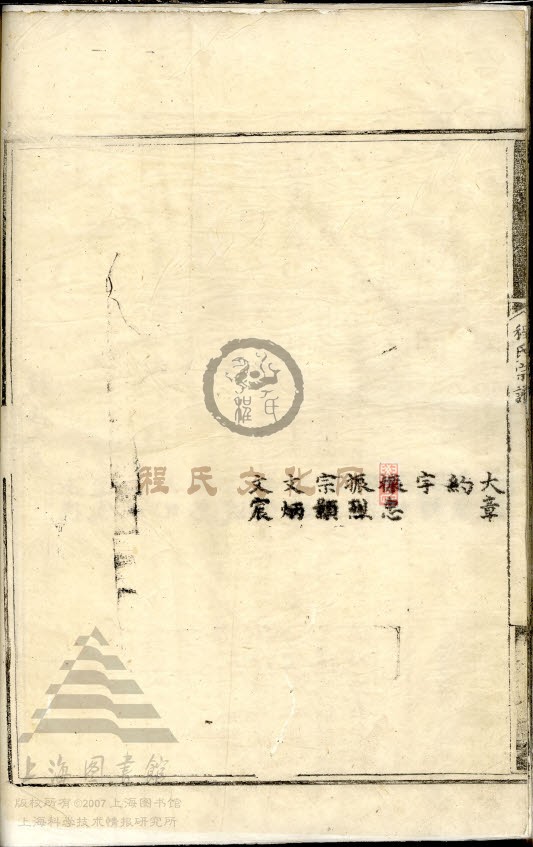 程氏宗譜
大章
約
字
振
振烈
宗顯
文炳
文宸
程氏文化网
上海图书馆
版权所有©2007 上海图书馆
上海科学技术情报研究所